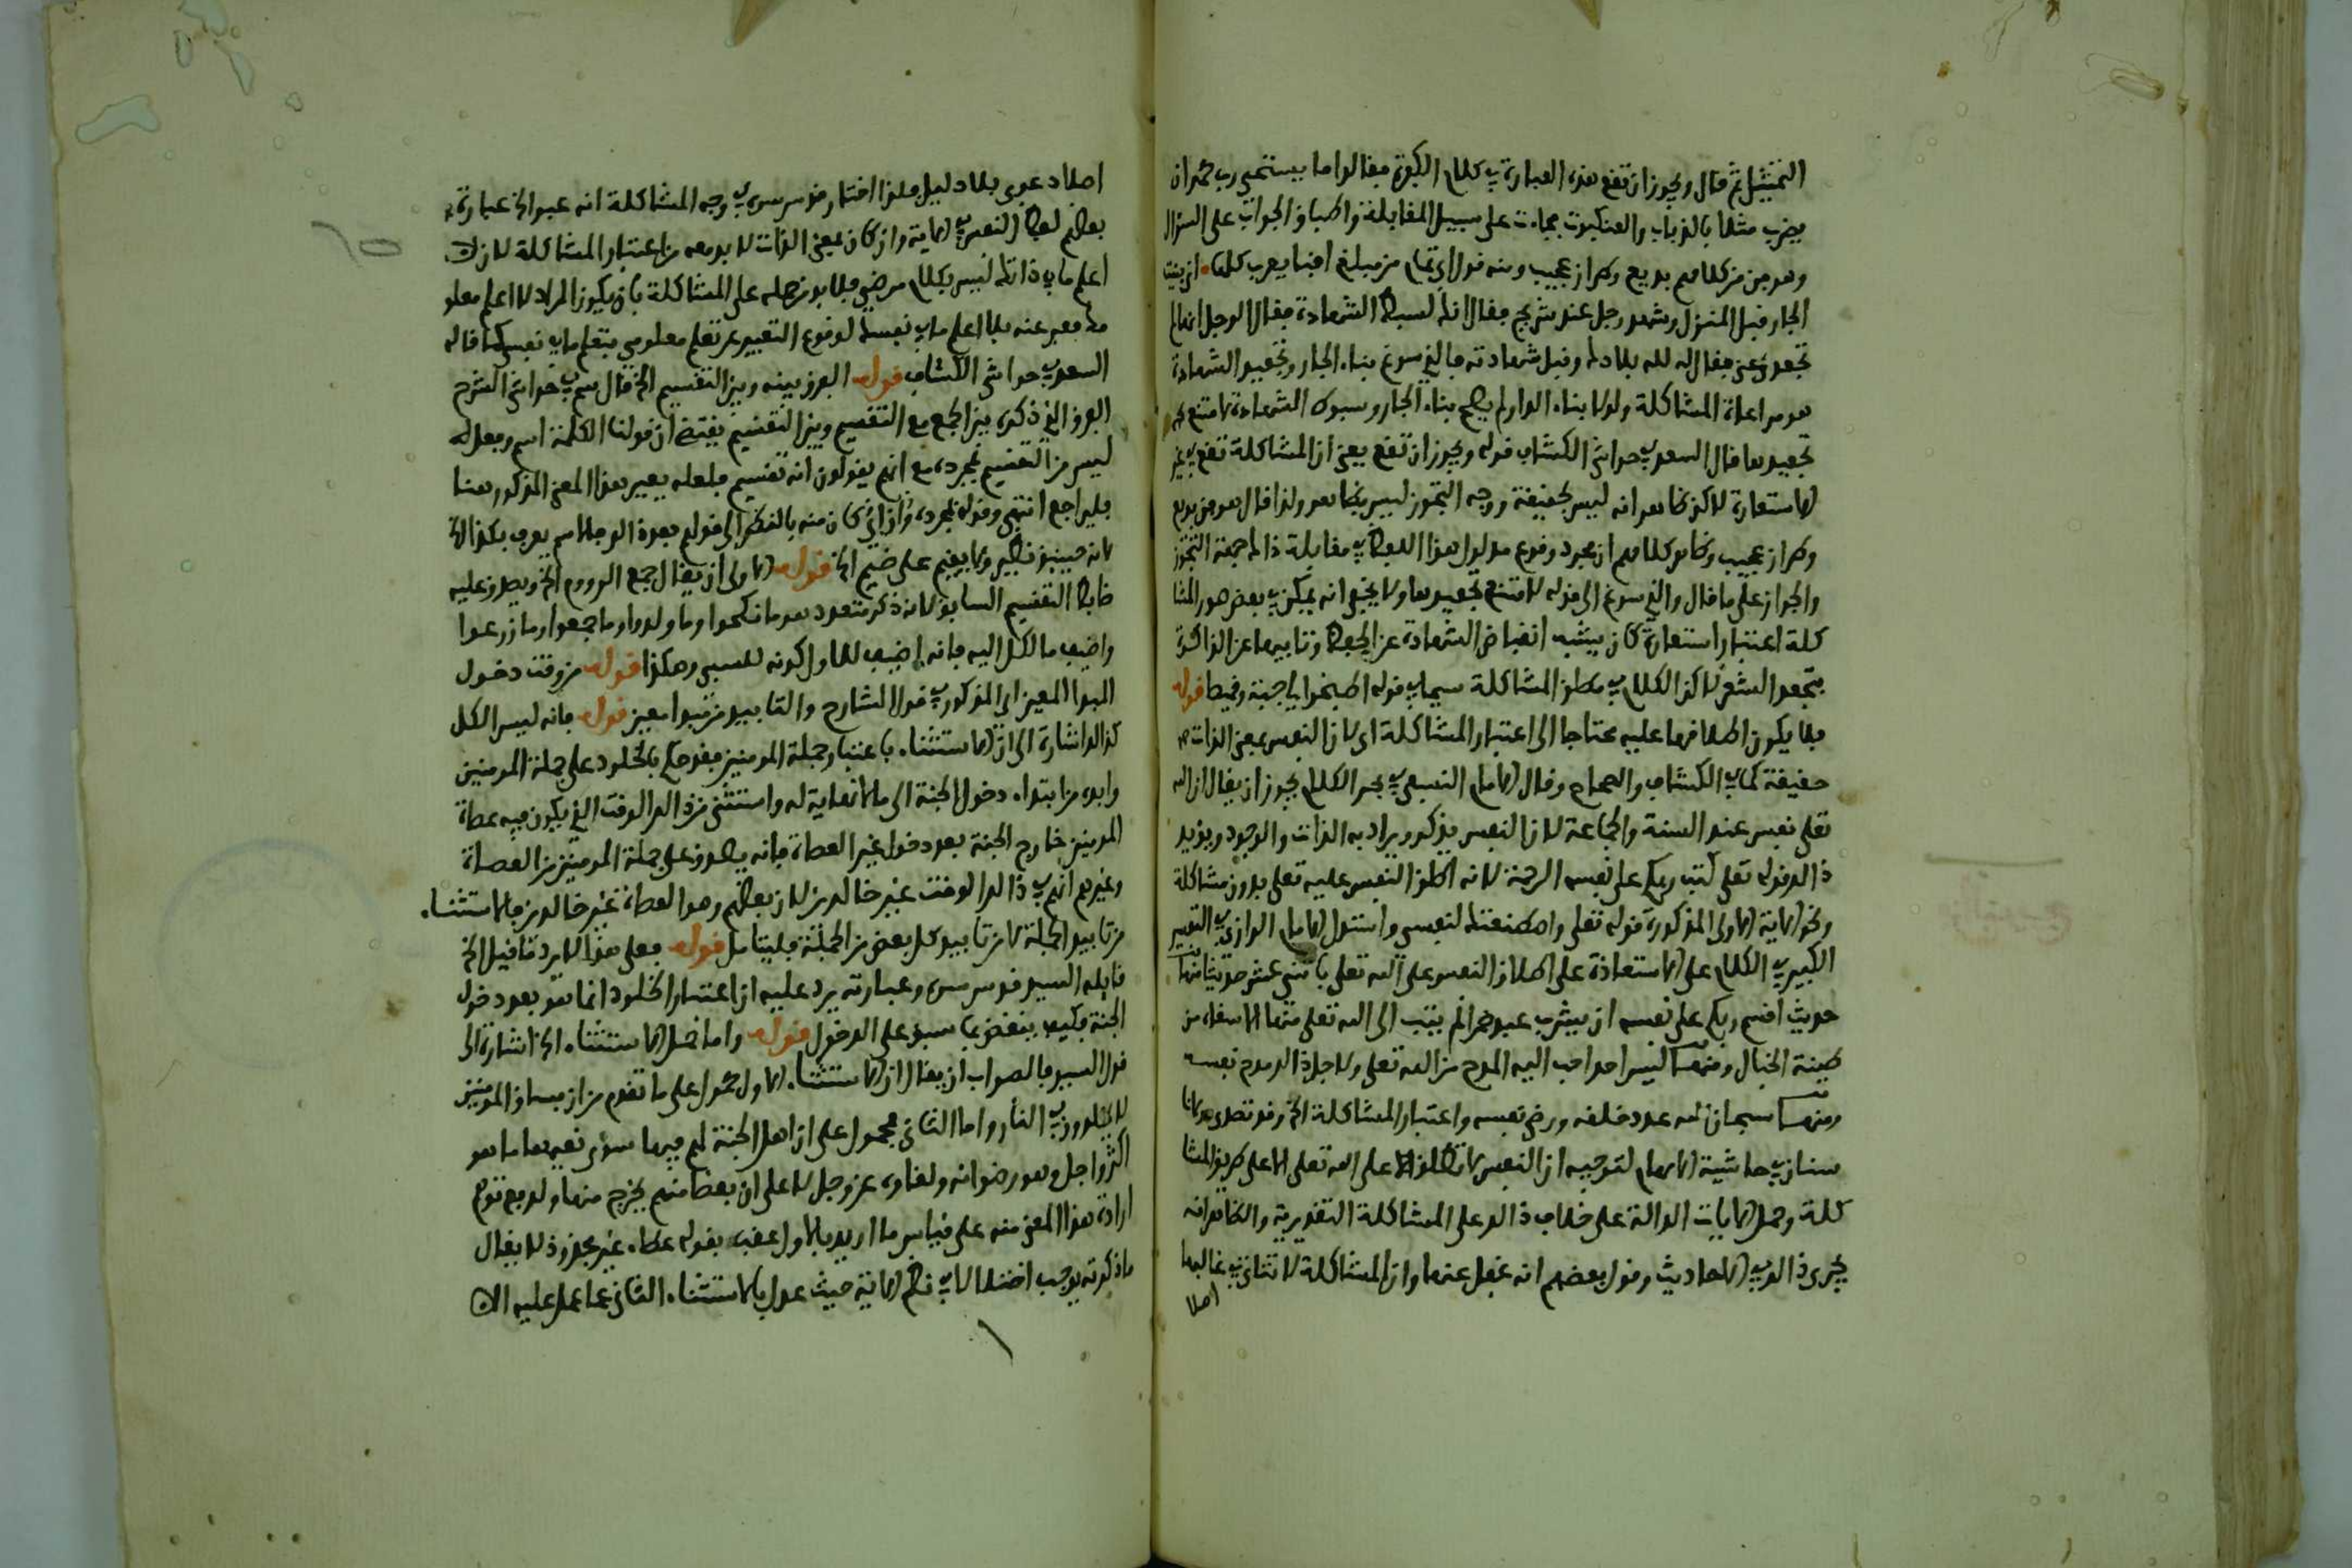 التمثيل ثم قال ويجوز ان تقع هذه العبارة في كلام الكفرة فقالوا اما يستحيي رب محمد ان
يضرب مثلا بالذباب والعنكبوت فجاءت على سبيل المقابلة واطباق الجواب على السؤال
وهو من من كلامهم بديع وطراز عجيب ومنه قول ابي تمام من مبلغ افناء يعرب كلها اني بنيت
الجار قبل المنزل وشهد رجل عند شريح فقال انك لسبط الشهادة فقال الرجل انها لم
تجعد عني فقال له لله بلادك وقبل شهادته فالذي سوغ بناء الجار وتجعيد الشهادة
هو مراعاة المشاكلة ولولا بناء الدار لم يصح بناء الجار وسبوط الشهادة لامتنع
تجعيدها قال السعد في حواشي الكشاف قوله ويجوز ان تقع يعني ان المشاكلة تقع في غير
الاستعارة لاكن ظاهر انه ليس بحقيقة ووجه التجوز ليس بظاهر ولذا قال هو من بديع
وطراز عجيب وظاهر كلامهم ان مجرد وقوع مدلول هذا اللفظ في مقابلة ذاك جهة التجوز
والجواز على ما قال والذي سوغ الى قوله لامتنع تجعيدها ولا يخفى انه يمكن في بعض صور المشا
كلة اعتبار استعارة كان يشبه انقباض الشهادة عن الحفظ وتابيها عن الذاكرة
بتجعد الشعر لاكن الكلام في مطلق المشاكلة سيما في قوله اطبخوا لي جبة وقميصا قوله
فلا يكون اطلاقها عليه محتاجا الى اعتبار المشاكلة اي لان النفس بمعنى الذات
حقيقة كما في الكشاف والصحاح وقال الامام النسفي في بحر الكلام يجوز ان يقال ان الله
تعلى نفس عند السنة والجماعة لان النفس يذكر ويراد به الذات والوجود ويؤيد
ذالك قوله تعلى كتب ربكم على نفسه الرحمة لانه اطلق النفس عليه تعلى بدون مشاكلة
ونحو الاية الاولى المذكورة قوله تعلى واصطنعتك لنفسي واستدل الامام الرازي في التفسير
الكبير في الكلام على الاستعاذة على اطلاق النفس على الله تعلى باثني عشر حديثا منها
حديث اقسم ربكم على نفسه ان يشرب عبد خمرا لم يتب الى الله تعلى منها الا سقاه من
طينة الخبال ومنها ليس احد احب اليه المدح من الله تعلى ولاجل ذالك مدح نفسه
ومنها سبحان الله عدد خلقه ورضى نفسه واعتبار المشاكلة الخ وقد تصدى مولانا
سنان في حاشية الالهام لتوجيه ان النفس لا تطلق الا على الله تعلى الا على طريق المشا
كلة وحمل الايات الدالة على خلاف ذالك على المشاكلة التقديرية والظاهر انه
يجري ذالك في الاحاديث وقول بعضهم انه غفل عنها وان المشاكلة لا تتاتى في غالبها
اصلا
اصلا دعوى بلا دليل فلذا اختار قدس سره في وجه المشاكلة انه عبر الخ عبارة
بعضهم لفظ النفس في الاية وان كان بمعنى الذات لا بد معه من اعتبار المشاكلة لان لا
اعلم ما في ذاتك ليس بكلام مرضي فلا بد من حمله على المشاكلة بان يكون المراد لا اعلم معلو
مك فعبر عنه بلا اعلم ما في نفسك لوقوع التعبير عن تعلم معلومي بتعلم ما في نفسي كما قاله
السعد في حواشي الكشاف قوله الفرق بينه وبين التقسيم الخ قال سم في حواشي الشرح
الفرق الذي ذكره بين الجمع مع التقسيم وبين التقسيم يقتضي ان قولنا الكلمة اسم وفعل
ليس من التقسيم بمجرده مع انهم يقولون انه تقسيم فلعله بغير هذا المعنى المذكور هنا
فليراجع انتهى وقوله بمجرده وان اي كان منه بالنظر الى قولهم بعده الوجلاسم يعرف بكذا
لانه حينيذ نظير ولا يقيم على ضيم الخ قوله الاولى ان يقال جمع الروم الخ ويصدق عليه
ضابط التقسيم السابق لانه ذكر متعدد هو ما نكحوا وما ولدوا وما جمعوا وما زرعوا
واضيف ما لكل اليه فانه اضيف للاول كونه للسبي وهكذا قوله من وقت دخول
المبدا المعين اي المذكور في قول الشارح والتابيد من مبدا معين قوله فانه ليس الكل
كذالك اشارة الى ان الاستثناء باعتبار جملة المومنين فقد حكم بالخلود على جملة المومنين
وابده من ابتداء دخول الجنة الى ما لا نهاية له واستثنى من ذالك الوقت الذي يكون فيه عصاة
المومنين خارج الجنة بعد دخول غير العصاة فانه يصدق على جملة المومنين من العصاة
وغيرهم انهم في ذالك الوقت غير خالدين لان بعضهم وهو العصاة غير خالدين فالاستثناء
من تابيد الجملة لا من تابيد كل بعض من الجملة فليتامل قوله فعلى هذا لا يرد ما قيل الخ
قايله السيد قدس سره وعبارته يرد عليه ان اعتبار الخلود انما هو بعد دخول
الجنة فكيف ينتقض بما سبق على الدخول قوله واما ضل الاستثناء الخ اشارة الى
قول السيد فالصواب ان يقال ان الاستثناء الاول محمول على ما تقدم من ان فساق المومنين
لا يخلدون في النار واما الثاني فمحمول على ان اهل الجنة لهم فيها سوى نعيمها ما هو
اكثر واجل وهو رضوانه ولقاؤه عز وجل لا على ان بعضا منهم يخرج منها ولدفع توهم
ارادة هذا المعنى منه على قياس ما اريد بالاول عقبه بقوله عطاء غير مجذوذ لا يقال
ما ذكرته يوجب اختلالا في نظم الاية حيث عدل بالاستثناء الثاني عما عمل عليه الا